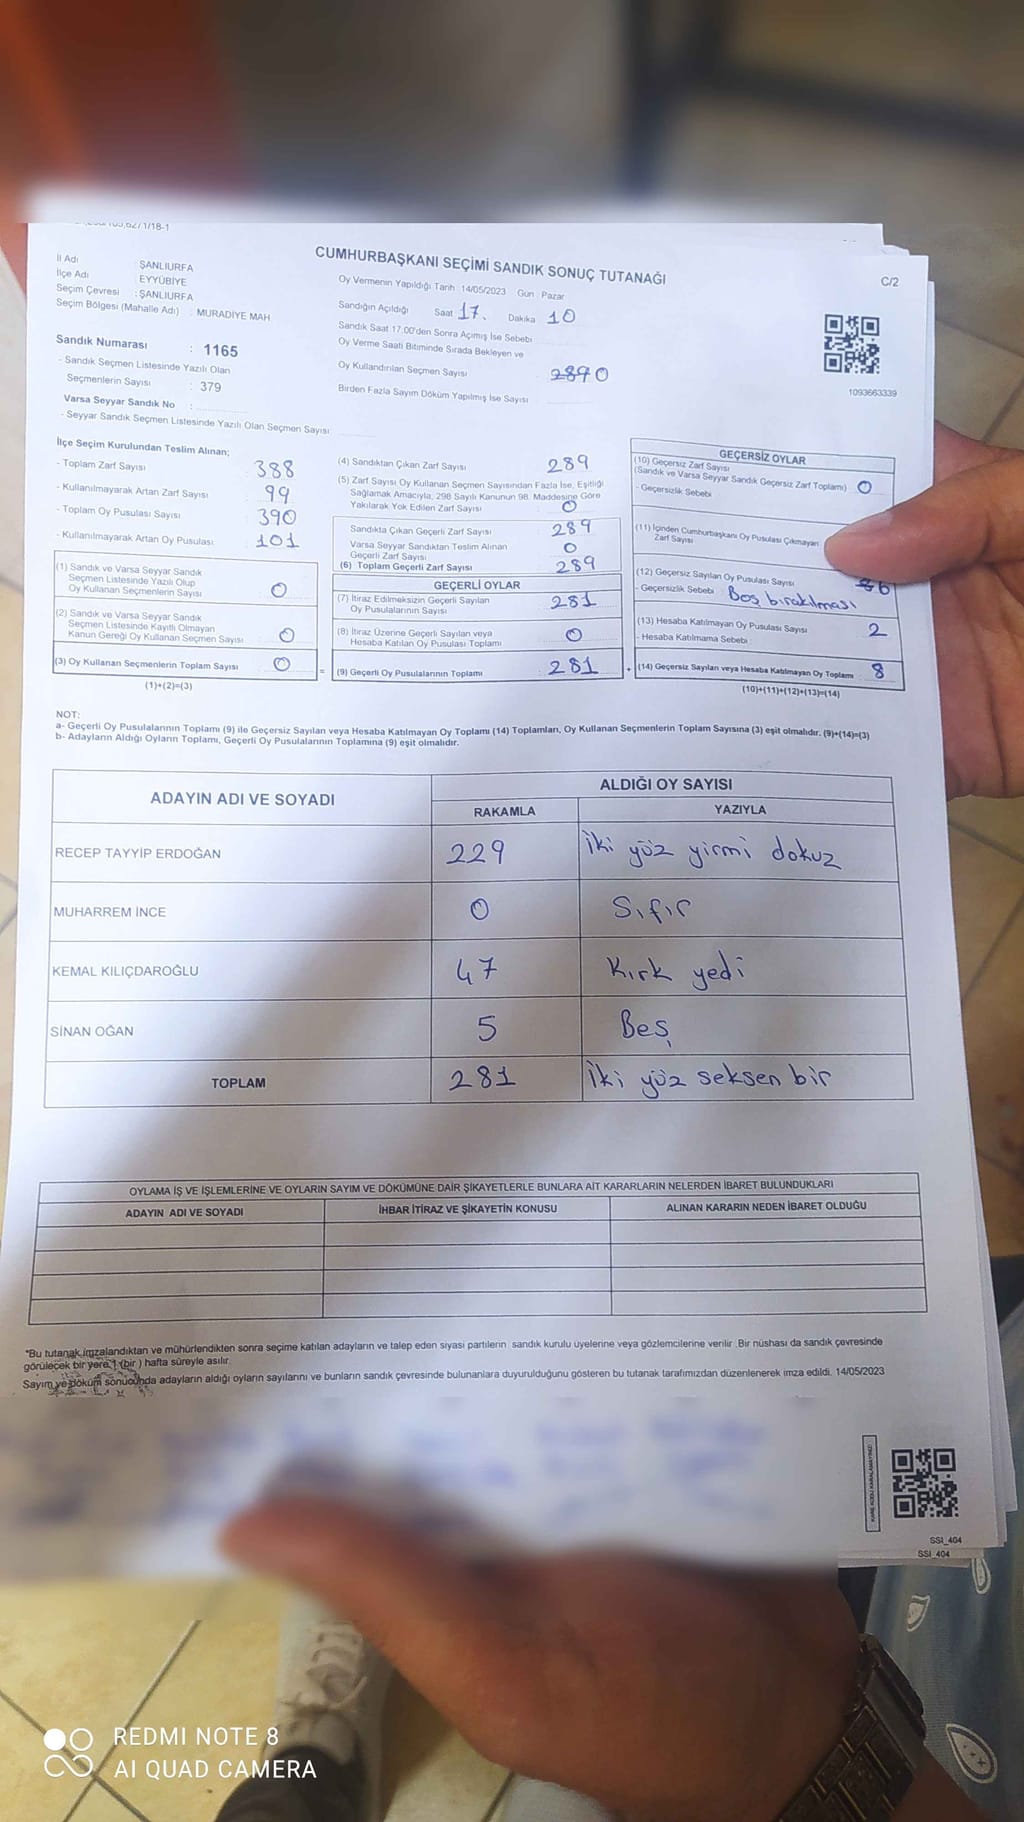 CUMHURBAŞKANI SEÇİMİ SANDIK SONUÇ TUTANAĞI
C/2
İl Adı : ŞANLIURFA
İlçe Adı : EYYÜBİYE
Seçim Çevresi : ŞANLIURFA
Seçim Bölgesi (Mahalle Adı) : MURADİYE MAH
Sandık Numarası : 1165
- Sandık Seçmen Listesinde Yazılı Olan
Seçmenlerin Sayısı : 379
Varsa Seyyar Sandık No :
- Seyyar Sandık Seçmen Listesinde Yazılı Olan Seçmen Sayısı:
Oy Vermenin Yapıldığı Tarih : 14/05/2023 Gün : Pazar
Sandığın Açıldığı Saat 17. Dakika 10
Sandık Saat 17.00'den Sonra Açımış İse Sebebi
Oy Verme Saati Bitiminde Sırada Bekleyen ve
Oy Kullandırılan Seçmen Sayısı 289 0
Birden Fazla Sayım Döküm Yapılmış İse Sayısı
1093663339
İlçe Seçim Kurulundan Teslim Alınan;
- Toplam Zarf Sayısı 388
- Kullanılmayarak Artan Zarf Sayısı 99
- Toplam Oy Pusulası Sayısı 390
- Kullanılmayarak Artan Oy Pusulası 101
(1) Sandık ve Varsa Seyyar Sandık
Seçmen Listesinde Yazılı Olup
Oy Kullanan Seçmenlerin Sayısı 0
(2) Sandık ve Varsa Seyyar Sandık
Seçmen Listesinde Kayıtlı Olmayan
Kanun Gereği Oy Kullanan Seçmen Sayısı 0
(3) Oy Kullanan Seçmenlerin Toplam Sayısı 0
(1)+(2)=(3)
(4) Sandıktan Çıkan Zarf Sayısı 289
(5) Zarf Sayısı Oy Kullanan Seçmen Sayısından Fazla İse, Eşitliği
Sağlamak Amacıyla, 298 Sayılı Kanunun 98. Maddesine Göre
Yakılarak Yok Edilen Zarf Sayısı 0
Sandıkta Çıkan Geçerli Zarf Sayısı 289
Varsa Seyyar Sandıktan Teslim Alınan
Geçerli Zarf Sayısı 0
(6) Toplam Geçerli Zarf Sayısı 289
GEÇERLİ OYLAR
(7) İtiraz Edilmeksizin Geçerli Sayılan
Oy Pusulalarının Sayısı 281
(8) İtiraz Üzerine Geçerli Sayılan veya
Hesaba Katılan Oy Pusulası Toplamı 0
= (9) Geçerli Oy Pusulalarının Toplamı 281 +
GEÇERSİZ OYLAR
(10) Geçersiz Zarf Sayısı
(Sandık ve Varsa Seyyar Sandık Geçersiz Zarf Toplamı) 0
- Geçersizlik Sebebi
(11) İçinden Cumhurbaşkanı Oy Pusulası Çıkmayan
Zarf Sayısı
(12) Geçersiz Sayılan Oy Pusulası Sayısı 6
- Geçersizlik Sebebi Boş bırakılması
(13) Hesaba Katılmayan Oy Pusulası Sayısı 2
- Hesaba Katılmama Sebebi
(14) Geçersiz Sayılan veya Hesaba Katılmayan Oy Toplamı 8
(10)+(11)+(12)+(13)=(14)
NOT:
a- Geçerli Oy Pusulalarının Toplamı (9) ile Geçersiz Sayılan veya Hesaba Katılmayan Oy Toplamı (14) Toplamları, Oy Kullanan Seçmenlerin Toplam Sayısına (3) eşit olmalıdır. (9)+(14)=(3)
b- Adayların Aldığı Oyların Toplamı, Geçerli Oy Pusulalarının Toplamına (9) eşit olmalıdır.
ADAYIN ADI VE SOYADI ALDIĞI OY SAYISI
RAKAMLA YAZIYLA
RECEP TAYYİP ERDOĞAN 229 İki yüz yirmi dokuz
MUHARREM İNCE 0 Sıfır
KEMAL KILIÇDAROĞLU 47 Kırk yedi
SİNAN OĞAN 5 Beş
TOPLAM 281 İki yüz seksen bir
OYLAMA İŞ VE İŞLEMLERİNE VE OYLARIN SAYIM VE DÖKÜMÜNE DAİR ŞİKAYETLERLE BUNLARA AİT KARARLARIN NELERDEN İBARET BULUNDUKLARI
ADAYIN ADI VE SOYADI İHBAR İTİRAZ VE ŞİKAYETİN KONUSU ALINAN KARARIN NEDEN İBARET OLDUĞU
*Bu tutanak imzalandıktan ve mühürlendikten sonra seçime katılan adayların ve talep eden siyasi partilerin sandık kurulu üyelerine veya gözlemcilerine verilir. Bir nüshası da sandık çevresinde
görülecek bir yere 1 (bir) hafta süreyle asılır.
Sayım ve döküm sonucunda adayların aldığı oyların sayılarını ve bunların sandık çevresinde bulunanlara duyurulduğunu gösteren bu tutanak tarafımızdan düzenlenerek imza edildi. 14/05/2023
SSI_404
SSI_404
REDMI NOTE 8
AI QUAD CAMERA